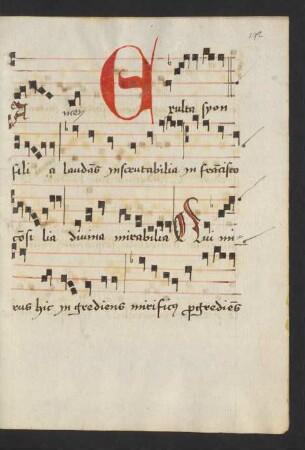 142
A men Exulta syon
filia laudās inscrutabilia in frācisco
cōsilia divina mirabilia Qui mi
rus hic ingrediens mirificꝰ ꝓgrediēs